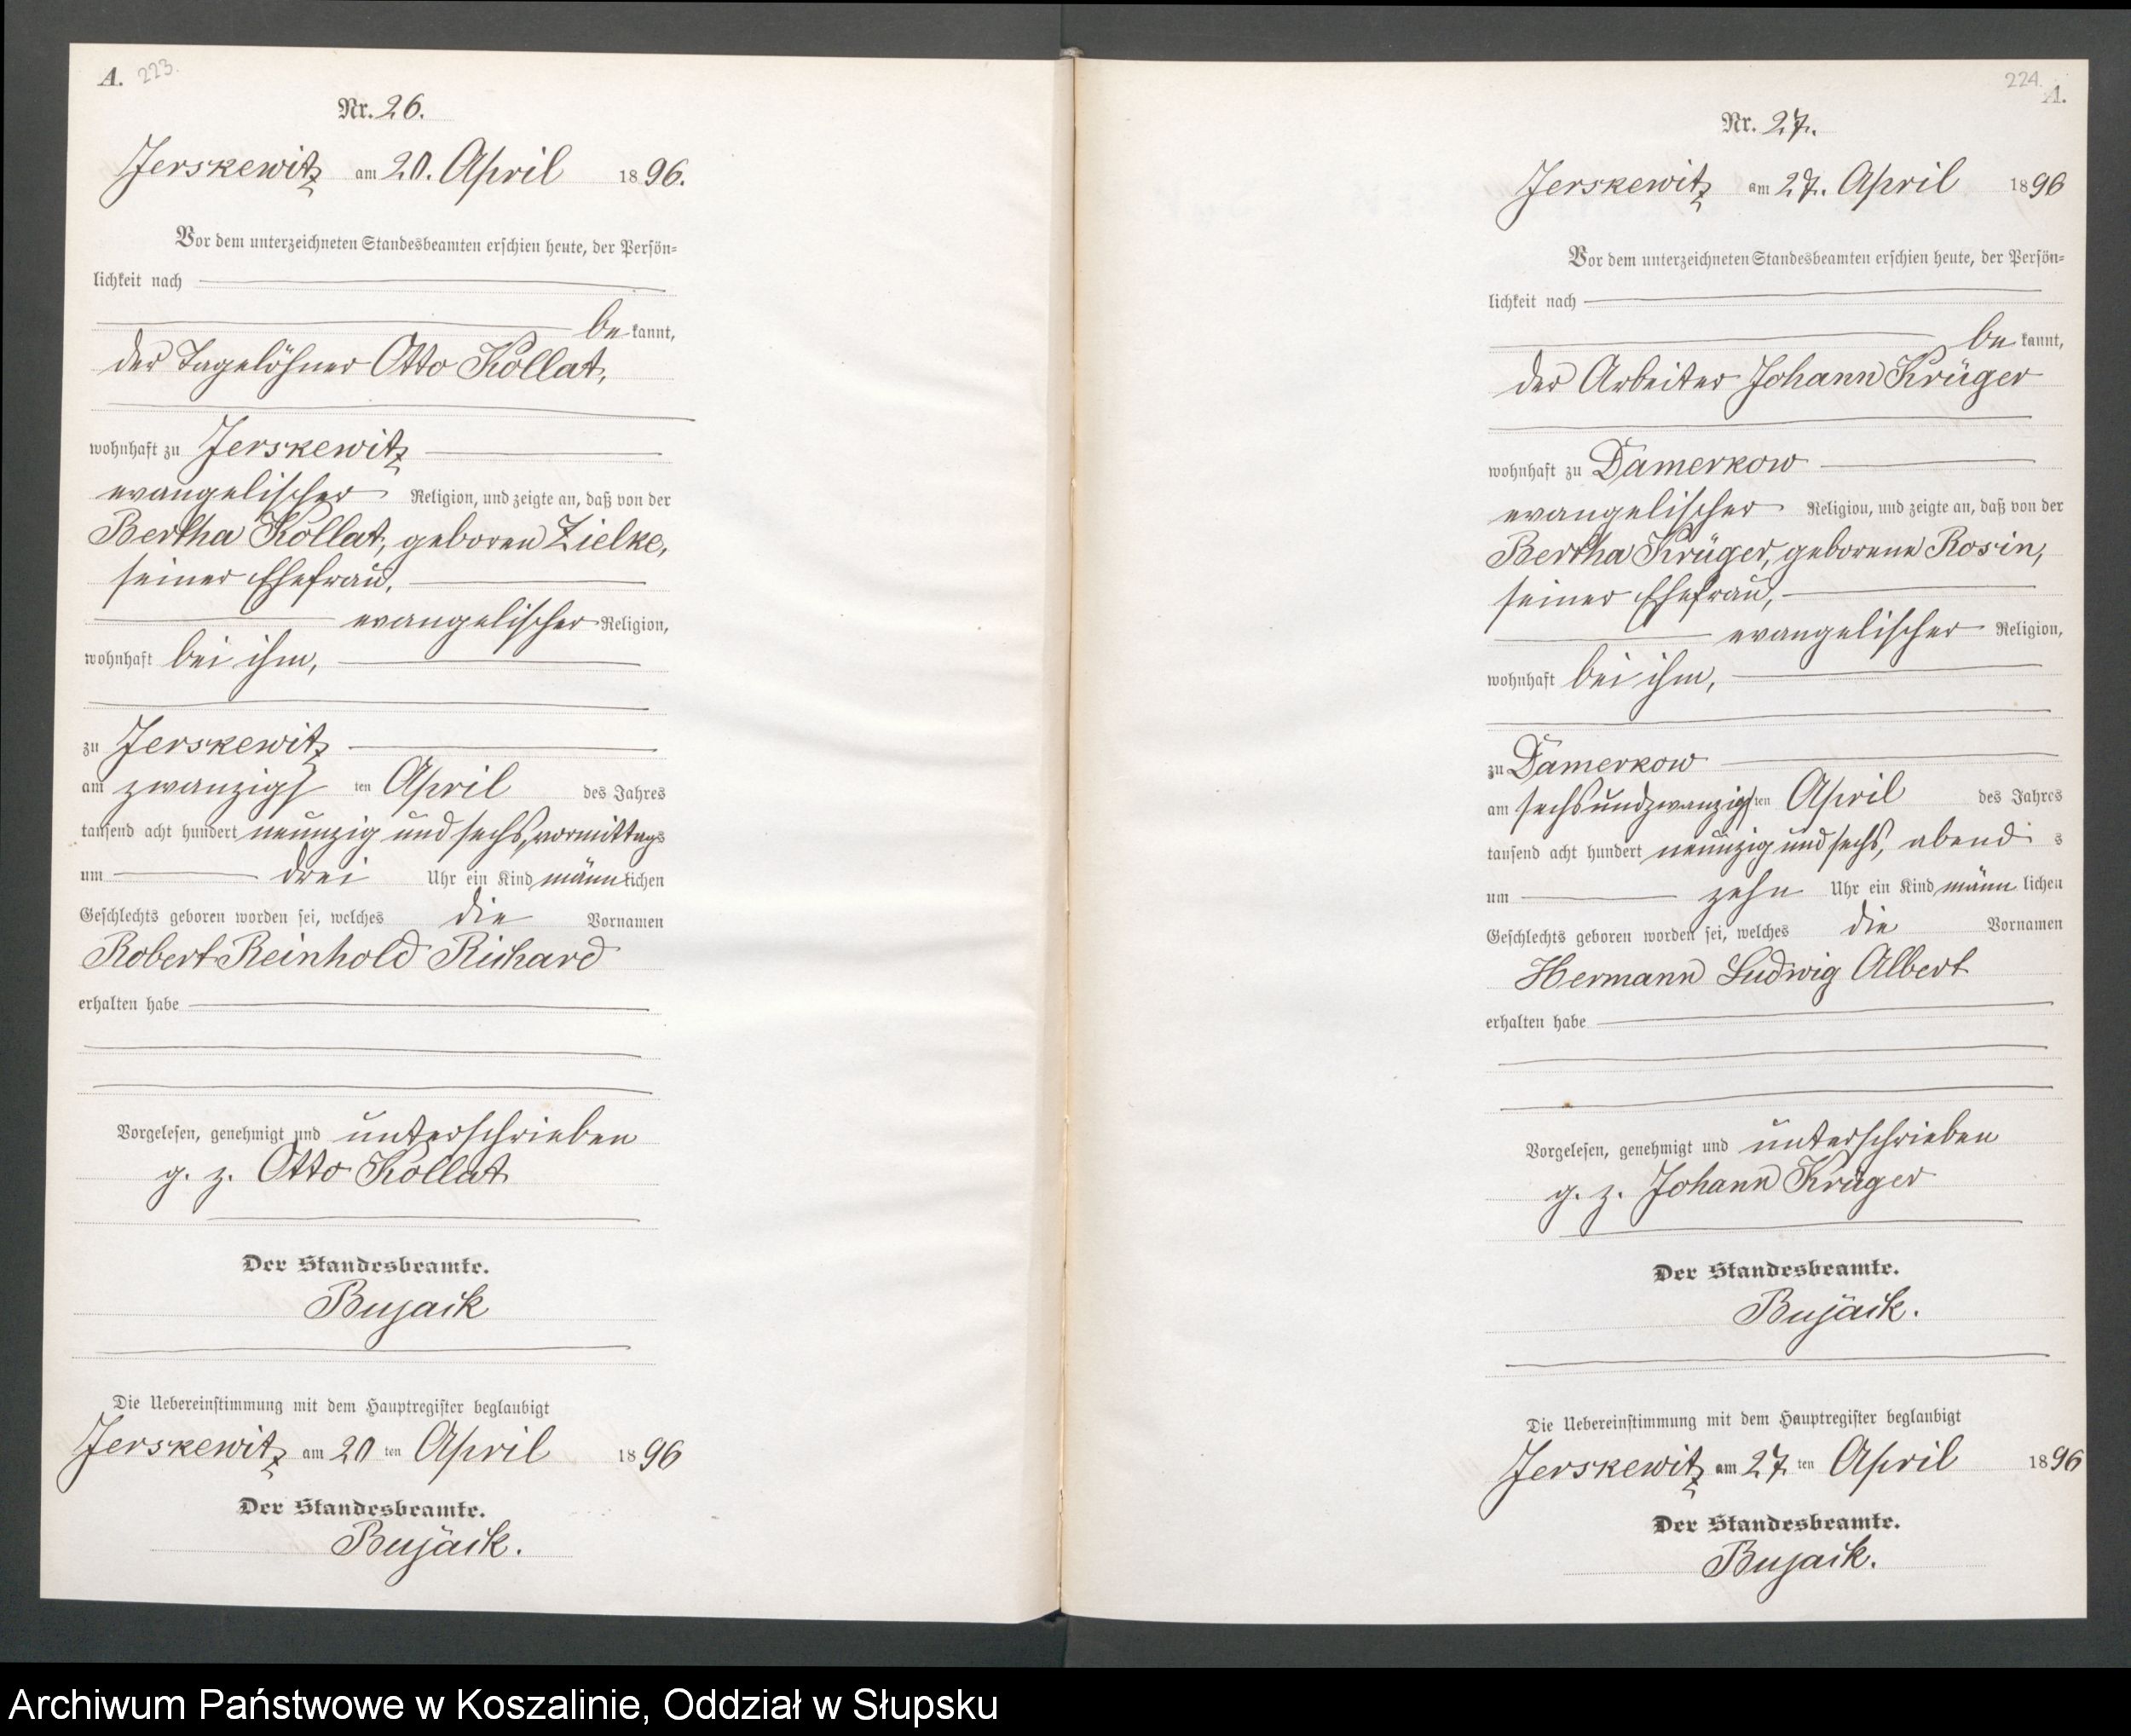 A. 223.
Nr. 26.
Jerskewitz am 20. April 1896.
Vor dem unterzeichneten Standesbeamten erschien heute, der Persön-
lichkeit nach
be kannt,
der Tagelöhner Otto Kollat,
wohnhaft zu Jerskewitz
evangelischer Religion, und zeigte an, daß von der
Bertha Kollat, geboren Zielke,
seiner Ehefrau,
evangelischer Religion,
wohnhaft bei ihm,
zu Jerskewitz
am zwanzigs ten April des Jahres
tausend acht hundert neunzig und sechs, vormittags
um drei Uhr ein Kind männlichen
Geschlechts geboren worden sei, welches die Vornamen
Robert Reinhold Richard
erhalten habe
Vorgelesen, genehmigt und unterschrieben
g. z. Otto Kollat
Der Standesbeamte.
Bujack
Die Uebereinstimmung mit dem Hauptregister beglaubigt
Jerskewitz am 20 ten April 1896
Der Standesbeamte.
Bujack.
224. A.
Nr. 27.
Jerskewitz am 27. April 1896
Vor dem unterzeichneten Standesbeamten erschien heute, der Persön-
lichkeit nach
be kannt,
der Arbeiter Johann Krüger
wohnhaft zu Damerkow
evangelischer Religion, und zeigte an, daß von der
Bertha Krüger, geborene Rosin,
seiner Ehefrau,
evangelischer Religion,
wohnhaft bei ihm,
zu Damerkow
am sechsundzwanzigsten April des Jahres
tausend acht hundert neunzig und sechs, abend s
um zehn Uhr ein Kind männ lichen
Geschlechts geboren worden sei, welches die Vornamen
Hermann Ludwig Albert
erhalten habe
Vorgelesen, genehmigt und unterschrieben
g. z. Johann Krüger
Der Standesbeamte.
Bujack.
Die Uebereinstimmung mit dem Hauptregister beglaubigt
Jerskewitz am 27 ten April 1896
Der Standesbeamte.
Bujack.
Archiwum Państwowe w Koszalinie, Oddział w Słupsku